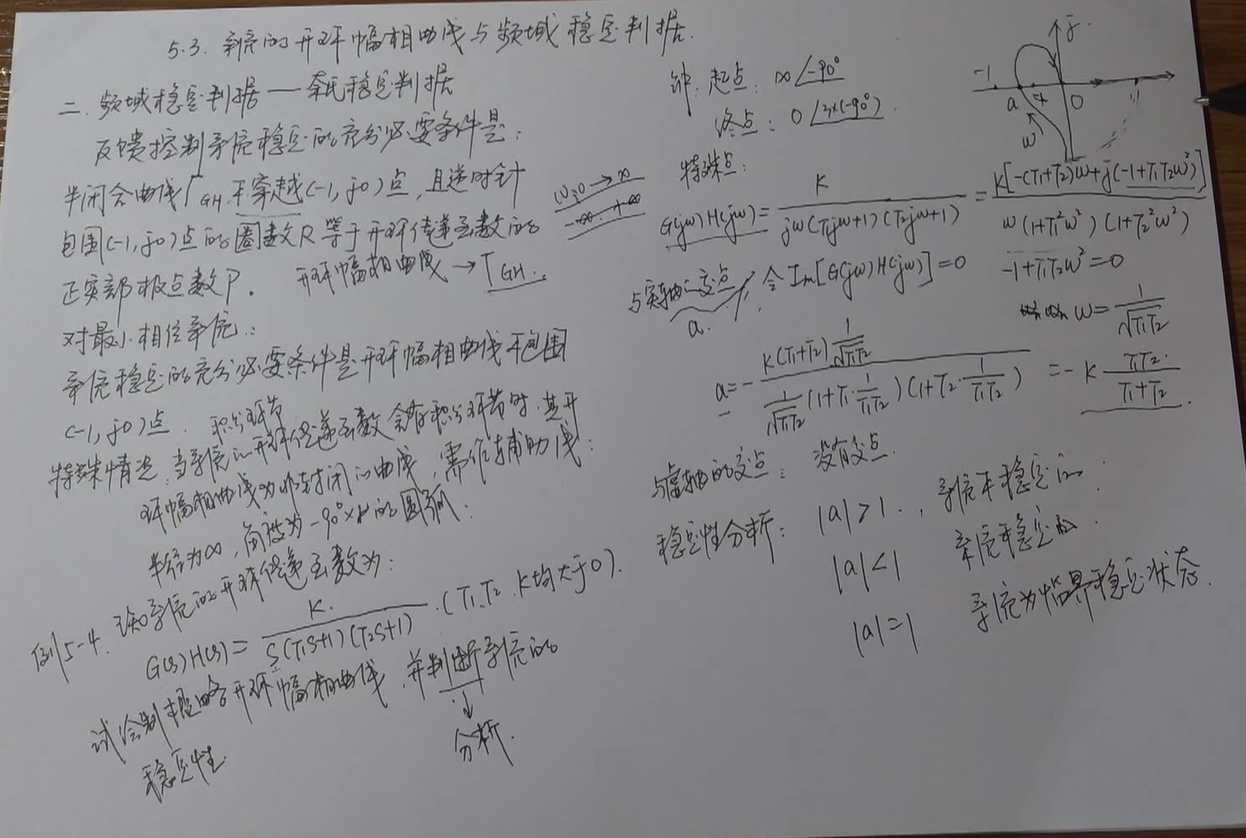 5.3. 系统的开环幅相曲线与频域稳定判据.
二. 频域稳定判据 — 奈氏稳定判据
反馈控制系统稳定的充分必要条件是:
半闭合曲线ΓGH 不穿越(-1, j0)点, 且逆时针
包围(-1, j0)点的圈数R等于开环传递函数的
正实部极点数P. 开环幅相曲线 → ΓGH.
对最小相位系统:
系统稳定的充分必要条件是开环幅相曲线不包围
(-1, j0)点.
积分环节
特殊情况, 当系统的开环传递函数含有积分环节时, 其开
环幅相曲线为非封闭的曲线, 需作辅助线:
半径为∞, 角度为-90°×ν的圆弧.
例5-4. 已知系统的开环传递函数为:
G(s)H(s) = K / S(T1S+1)(T2S+1) . (T1、T2、K均大于0).
试绘制概略开环幅相曲线, 并判断系统的
稳定性
↓
分析.
ω: 0 → ∞
-∞ +∞
解: 起点: ∞∠-90°
终点: 0∠3×(-90°)
特殊点:
G(jω)H(jω) = K / jω(T1jω+1)(T2jω+1) = K[-(T1+T2)ω+j(-1+T1T2ω²)] / ω(1+T1²ω²)(1+T2²ω²)
与实轴的交点, 令 Im[G(jω)H(jω)]=0 -1+T1T2ω²=0
a. ω = 1/√T1T2
a = - K(T1+T2) 1/√T1T2 / 1/√T1T2 (1+T1·1/T1T2)(1+T2·1/T1T2) = -K T1T2 / T1+T2 .
与虚轴的交点: 没有交点.
稳定性分析: |a|>1 . , 系统不稳定的.
|a|<1 系统稳定的.
|a|=1 系统为临界稳定状态.
j
-1 a 0
ω